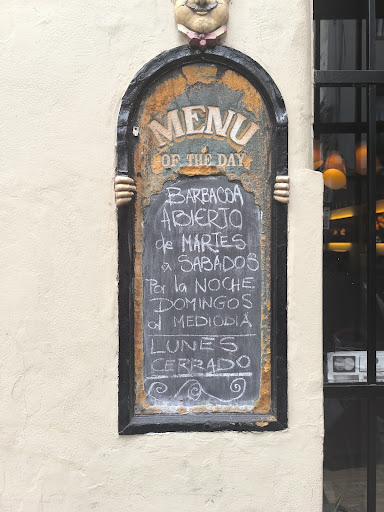 MENU
OF THE DAY
BARBACOA
ABIERTO
de MARTES
a SABADOS
Por la NOCHE
DOMINGOS
al MEDIODIA
LUNES
CERRADO